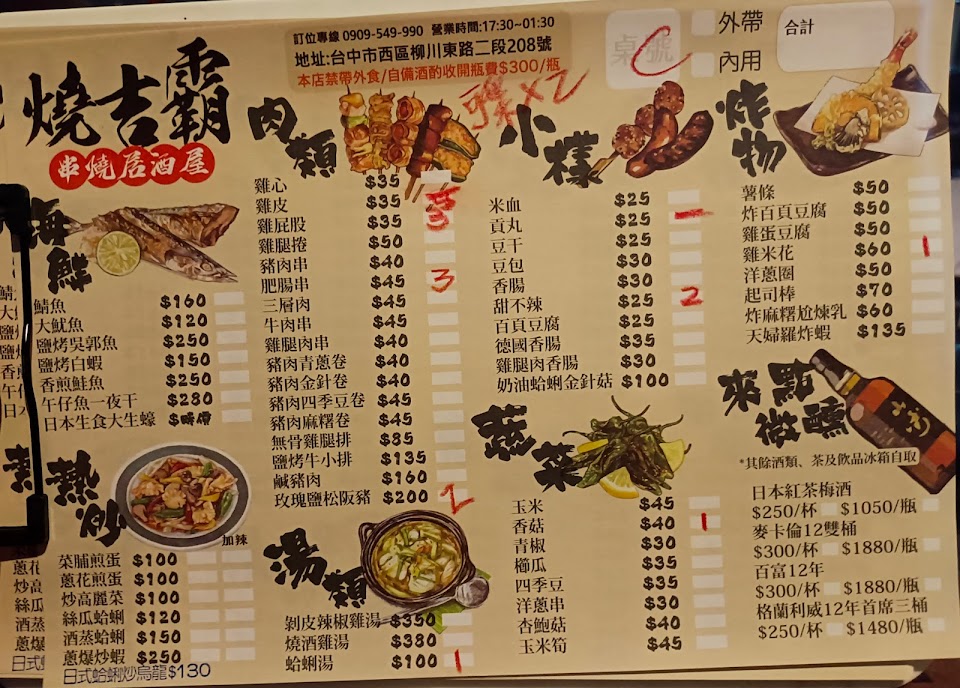 訂位專線 0909-549-990 營業時間:17:30~01:30
地址:台中市西區柳川東路二段208號
本店禁帶外食/自備酒酌收開瓶費$300/瓶
桌號 C
外帶
內用
合計
燒吉霸
串燒居酒屋
海鮮
鯖魚 $160
大魷魚 $120
鹽烤吳郭魚 $250
鹽烤白蝦 $150
香煎鮭魚 $250
午仔魚一夜干 $280
日本生食大生蠔 $時價
熱炒
加辣
菜脯煎蛋 $100
蔥花煎蛋 $100
炒高麗菜 $100
絲瓜蛤蜊 $120
酒蒸蛤蜊 $150
蔥爆炒蝦 $250
日式蛤蜊炒烏龍$130
肉類
雞心 $35
雞皮 $35 3
雞屁股 $35
雞腿捲 $50
豬肉串 $40
肥腸串 $45 3
三層肉 $45
牛肉串 $45
雞腿肉串 $40
豬肉青蔥卷 $40
豬肉金針卷 $40
豬肉四季豆卷 $45
豬肉麻糬卷 $45
無骨雞腿排 $85
鹽烤牛小排 $135
鹹豬肉 $160
玫瑰鹽松阪豬 $200 2
湯類
剝皮辣椒雞湯 $350
燒酒雞湯 $380
蛤蜊湯 $100 1
X2
小樣
米血 $25
貢丸 $25 一
豆干 $25
豆包 $30
香腸 $30
甜不辣 $25 2
百頁豆腐 $25
德國香腸 $35
雞腿肉香腸 $30
奶油蛤蜊金針菇 $100
蔬菜
玉米 $45
香菇 $40 1
青椒 $30
櫛瓜 $35
四季豆 $35
洋蔥串 $30
杏鮑菇 $40
玉米筍 $45
炸物
薯條 $50
炸百頁豆腐 $50
雞蛋豆腐 $50
雞米花 $60 1
洋蔥圈 $50
起司棒 $70
炸麻糬尬煉乳 $60
天婦羅炸蝦 $135
來點微醺
*其餘酒類、茶及飲品冰箱自取
日本紅茶梅酒
$250/杯 $1050/瓶
麥卡倫12雙桶
$300/杯 $1880/瓶
百富12年
$300/杯 $1880/瓶
格蘭利威12年首席三桶
$250/杯 $1480/瓶